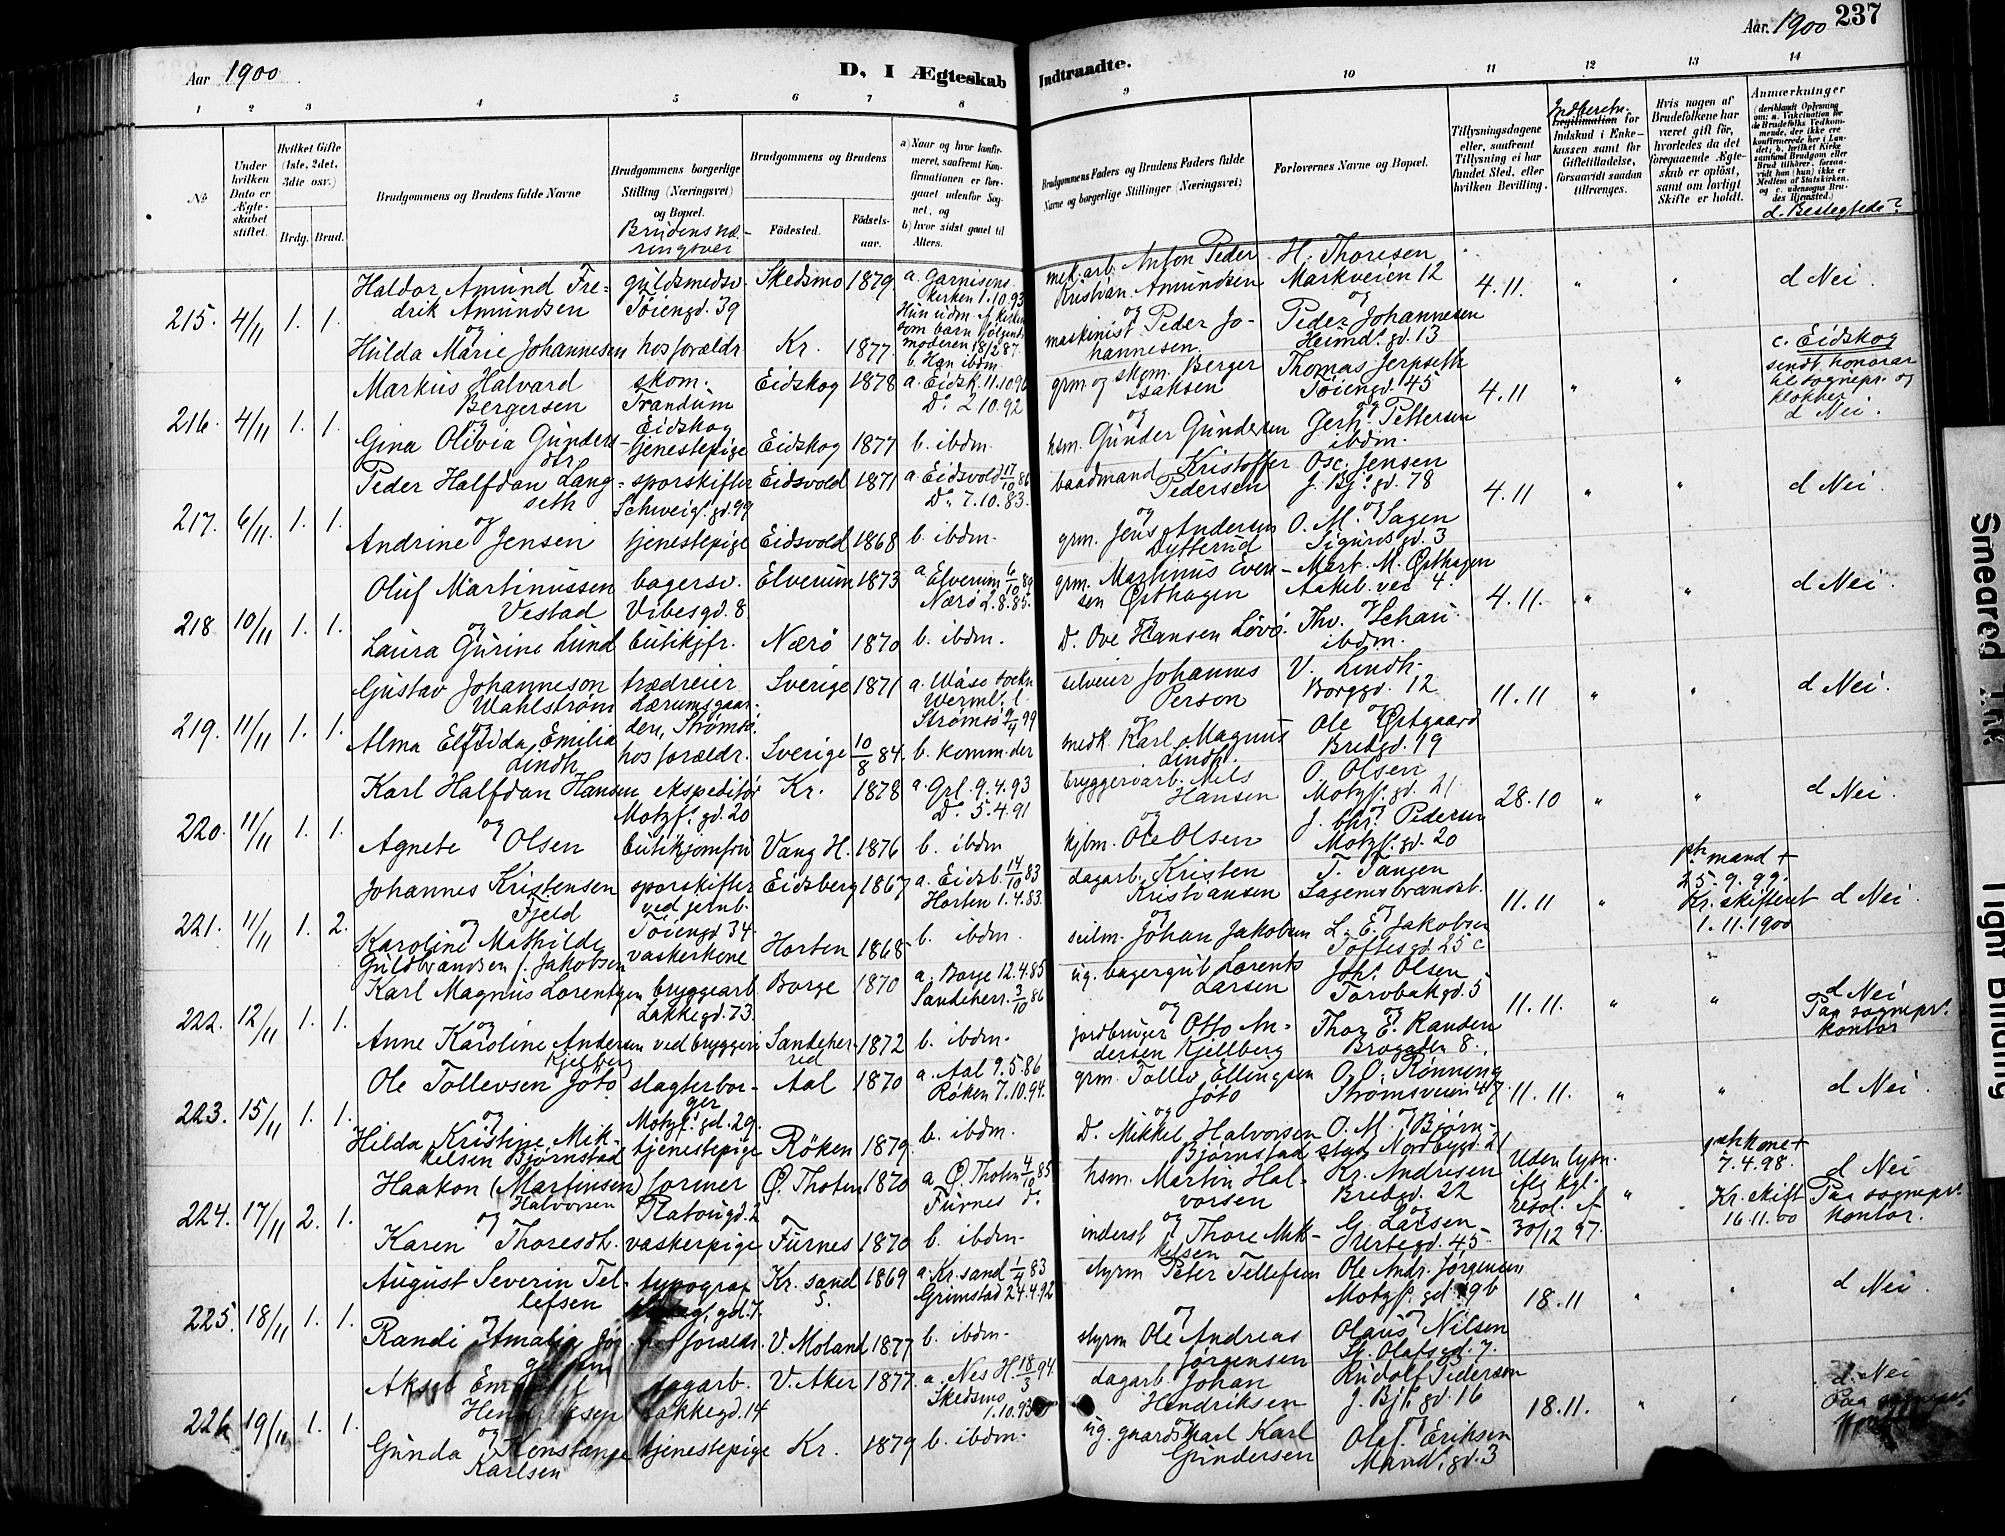 Aar 1900
D, I Ægteskab
Indtraadte.
Aar. 1900
237
1 2 3 4 5 6 7 8 9 10 11 12 13 14
No
Under hvilken Dato er Ægteskabet stiftet.
Hvilket Gifte (1ste, 2det, 3die osv.)
Brdg. Brud.
Brudgommens og Brudens fulde Navne
Brudgommens borgerlige Stilling (Næringsvei) og Bopæl.
Brudens næringsvei
Brudgommens og Brudens
Fødested.
Fødselsaar.
a) Naar og hvor konfirmeret, saafremt Konfirmationen er foregaaet udenfor Sognet, og
b) hvor sidst gaaet til Alters.
Brudgommens Faders og Brudens Faders fulde Navne og borgerlige Stillinger (Næringsvei)
Forlovernes Navne og Bopæl.
Tillysningsdagene eller, saafremt Tillysning ei har fundet Sted, efter hvilken Bevilling.
Indberetn.
Legitimation for Indskud i Enkekassen samt for Giftetilladelse, forsaavidt saadan tiltrænges.
Hvis nogen af Brudefolkene har været gift før, hvorledes da det foregaaende Ægteskab er opløst, samt om lovligt Skifte er holdt.
Anmærkninger
(deriblandt Oplysning om: a. Vakcination for de Brudefolks Vedkommende, der ikke ere konfirmerede her i Landet, b. hvilket Kirkesamfund Brudgom eller Brud tilhører, forsaavidt han (hun) ikke er Medlem af Statskirken, og c. udensogns Brudes Hjemsted.)
d. Beslegtede?
215. 4/11 1. 1.
Haldor Amund Fredrik Amundsen
og
Hulda Marie Johannesen
guldsmedsv. Tøiengd. 39
hos forældr.
Skedsmo 1879
Kr. 1877
a. Garnisonskirken 1.10.93
Hun udm. af kirken som barn følgende moderen 18/2 87.
b. Han ibdm.
mek. arb. Anton Peder Kristian Amundsen
og
maskinist Peder Johannesen.
H. Thoresen Markveien 12
og
Peder Johannesen Heimd. gd. 13
4.11. " "
d Nei.
216. 4/11 1. 1.
Markus Halvard Bergersen
og
Gina Olivia Gundersdtr
skom. Trandum Eidskog
tjenestepige
Eidskog 1878
Eidskog 1877
a. Eidsk. 11.10.96
Do. 2.10.92
b. ibdm.
grm. og skom. Berger Isaksen
og
hsm. Gunder Gundersen
Thomas Jerpseth Tøiengd. 45
og
Jerh. Pettersen ibdm.
4.11 " "
c. Eidskog
sendt honorar til sognepr. og klokker
d Nei.
217. 6/11. 1. 1.
Peder Halfdan Langseth
og
Andrine Jensen
sporskifter Schweig. gd. 99
tjenestepige
Eidsvold 1871
Eidsvold 1868
a. Eidsvold 17/10 86
Do. 7.10.83.
b. ibdm.
baadmand Kristoffer Pedersen
og
grm. Jens Andersen Dytterud
Osc. Jensen J. Bj. gd. 78
og
O. M. Sagen Sigurdsgd. 3
4.11 " "
d Nei.
218 10/11 1. 1.
Oluf Martinussen Vestad
og
Laura Gurine Lund
bagersv. Vibesgd. 8.
butikjfr.
Elverum 1873
Nærø 1870
a Elverum 6/10 89
Nærø 2.8.85.
b. ibdm.
grm. Martinus Evensen Østhagen
og
D. Ove Hansen Løvø.
Mart. M. Østhagen Aakeb. vei 4.
og
Thv. Schau ibdm.
4.11. " "
d Nei.
219. 11/11 1. 1.
Gustav Johanneson Wahlstrøm
og
Alma Elfrida Emilia Lindh
trædreier Lærumsgaarden, Strømsø.
hos forældr.
Sverige 1871
Sverige 10/8 84.
a. Wåse sockn Werml. l
Strømsø 9/4 99
b. komm. der
selveier Johannes Person
og
medk. Karl Magnus Lindh.
V. Lindh. Borggd. 12
og
Ole Østgaard Bredgd. 19
11.11 " "
d Nei.
220. 11/11 1. 1.
Karl Halfdan Hansen
og
Agnete Olsen
ekspeditør Motzf. gd. 20
butikjomfru
Kr. 1878
Vang H. 1876
a. Grl. 9.4.93
Do. 5.4.91
b. ibdm
bryggeriarb. Nils Hansen
og
kjbm. Ole Olsen
O. Olsen Motzf. gd. 21
og
J. Chr. Pedersen Motzf. gd. 20
28.10 " "
d Nei.
221. 11/11 1. 2.
Johannes Kristensen Fjeld
og
Karoline Mathilde Guldbrandsen f. Jakobsen
sporskifter ved jernb. Tøiengd 34
vaskerkone
Eidsberg 1867
Horten 1868
a. Eidsb. 14/10 83
Horten 1.4.83.
b. ibdm.
dagarb. Kristen Kristiansen
og
seilm. Johan Jakobsen
T. Tangen Sagenebrandst.
og
L. E. Jakobsen Toftesgd 25 c
11.11 "
1ste mand + 25.9.99. Kr. skifteret 1.11.1900
d Nei
222. 12/11 1. 1.
Karl Magnus Lorentzen
og
Anne Karoline Andersen Kjellberg
bryggearb. Lakkegd. 73.
ved bryggeri
Borge 1870
Sandeherred 1872
a. Borge 12.4.85
Sandeherr. 3/10 86
b. ibdm.
ug. bagergut Lorents Larsen
og
jordbruger Otto Andersen Kjellberg
Johs. Olsen Torvbakgd. 5
og
Thor E. Randen Brogaden 8.
11.11. " "
d Nei
Paa sognepr. kontor
223. 15/11 1. 1.
Ole Tollevsen Joto
og
Hilda Kristine Mikkelsen Bjørnstad
slagterborger Motzf. gd. 29.
tjenestepige
Aal 1870
Røken 1879.
a. Aal 9.5.86
Røken 7.10.94.
b. ibdm.
grm. Tollev Ellingsen Joto
og
D. Mikkel Halvorsen Bjørnstad
O. O. Rønning Strømsveien 47
og
O. M. Bjørnstad Nordbygd. 21
11.11. " "
d Nei
224. 17/11 2. 1.
Haakon (Martinsen) Halvorsen
og
Karen Thoresdt.
former Platougd. 2
vaskerpige
Ø. Thoten 1870
Furnes 1870
a. Ø. Thoten 4/10 85
Furnes do.
b. ibdm.
hsm. Martin Halvorsen
og
inderst Thore Mikkelsen
Kr. Andresen Bredgd. 22
og
G. Larsen Urtegd. 45
Uden lysn. iflg kgl. resol. af 30/12 97.
"
1ste kone + 7.4.98. Kr. Skift 16.11.00
d Nei
Paa sognepr. kontor.
225. 18/11 1. 1.
August Severin Tellefsen
og
Randi Amalia
typograf
gd. 7.
forældr.
Kr.sand S. 1869
V. Moland 1877
a. Kr.sand 1/4 83
Grimstad 24.4.92
b. ibdm.
styrm. Peter Tellefsen
og
styrm Ole Andreas Jørgensen
Ole Andr. Jørgensen Motzf. gd. 9b
og
Olaus Nilsen St. Olafsgd. 7.
18.11 " "
d Nei.
226 19/11 1. 1.
Aksel
og
Gunda Konstanse Karlsen
dagarb. Lakkegd. 14
tjenestepige
V. Aker 1877.
Kr. 1879
a. Nes H. 18/3 94.
Skedsmo 1.10.93
b. ibdm.
dagarb. Johan Hendriksen
og
ug. gaardskarl Karl Gundersen
Rudolf Pedersen J. Bj. gd 16
og
Olaf Eriksen Mand. gd. 3
18.11. " "
d. Nei
Paa sognepr.
Smeared Ink
Tight Binding